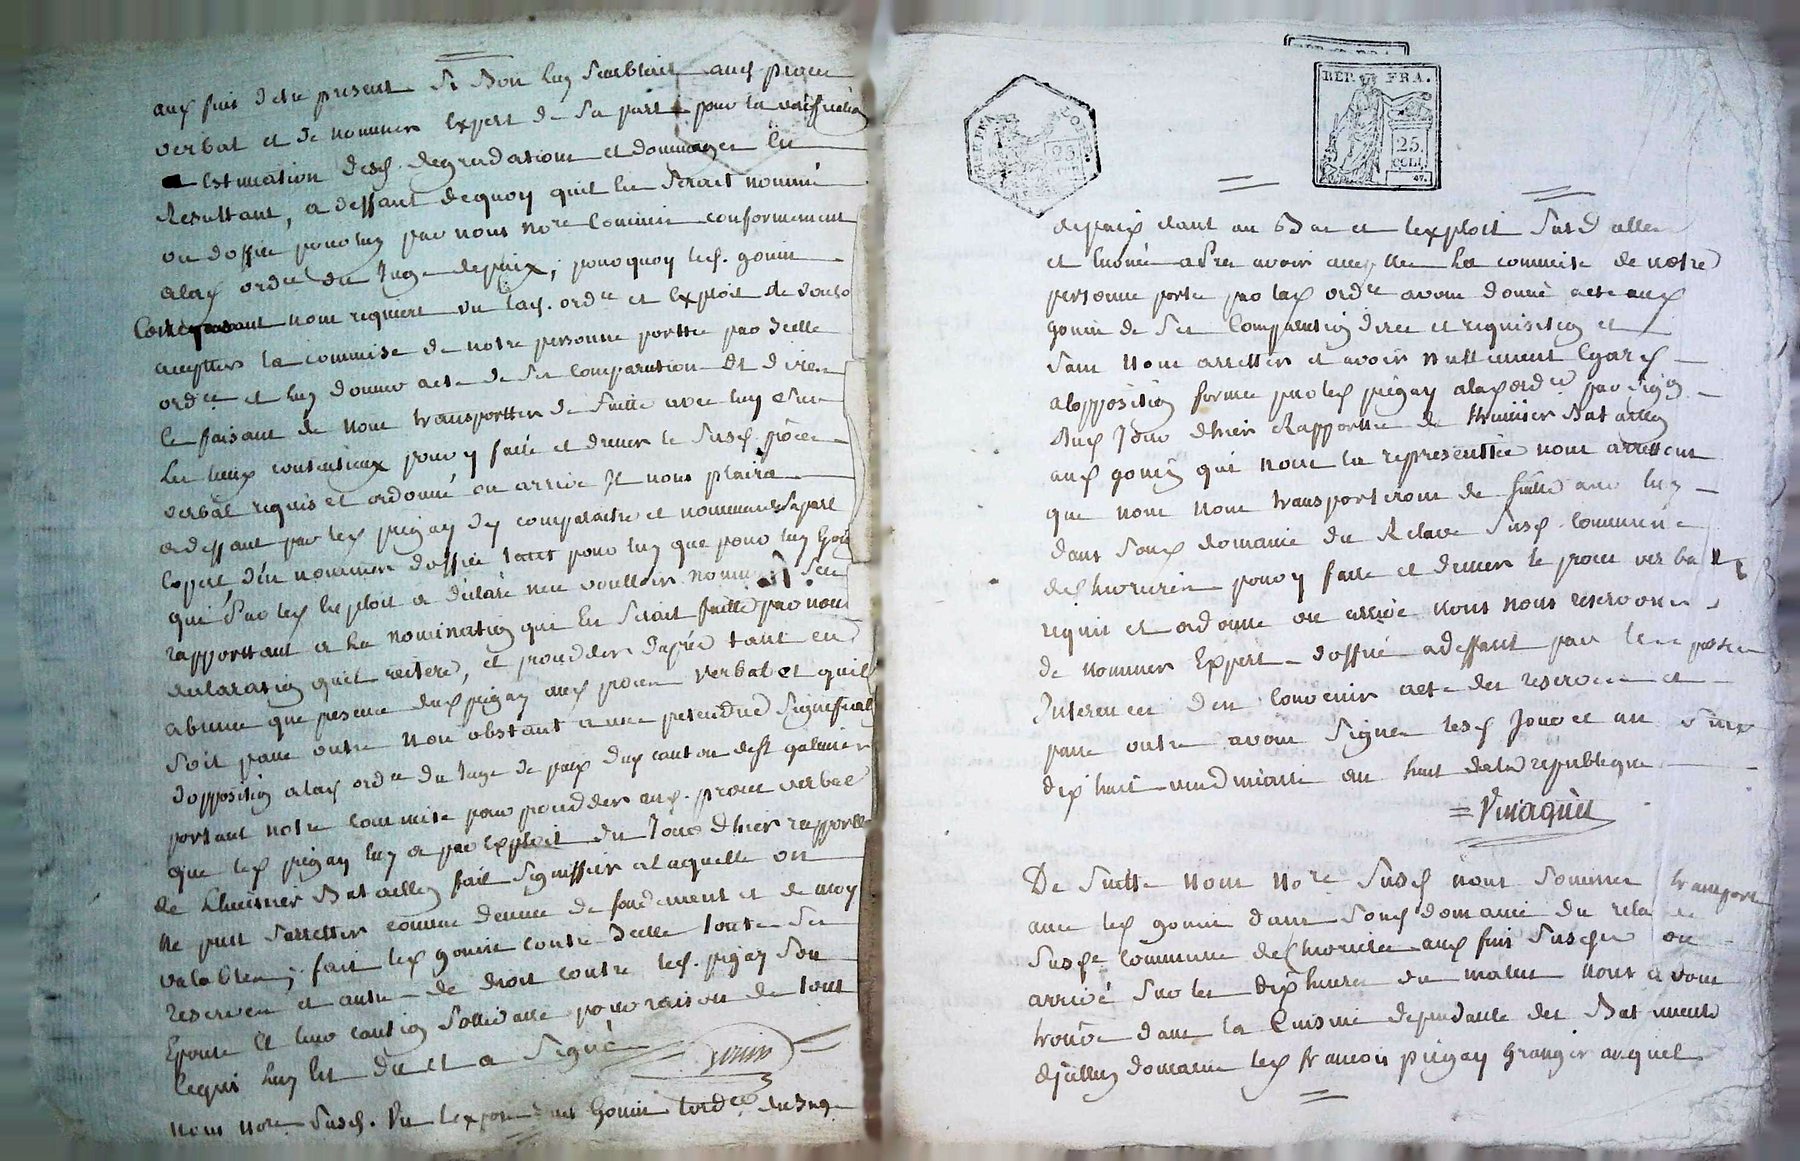 aux fins detre present Si Bon luy Semblait aud. proces
verbal et de nommer Expert de Sa part pour la veriffication
Estimation desd. degradations et dommages En
Resultant, a deffaut dequoy quil En Serait nommé
un doffice pour luy par nous nore Commis conformement
alad. ordce du Juge depaix, pourquoy led. gonin
Comparant nous requiert vu lad. ordce et Exploit de vouloir
accepter la commise de notre personne porttée par Icelle
ordce et luy donner acte de Sa Comparution Et dire
Ce faisant de nous transportter de Suitte avec luy Sur
Les lieux contentieux pour y faire et dresser le Susd. proces
verbal requis et ordonné ou arrivé Il nous plaira
adeffaut par led. pigay dy comparaitre et nommer de Sa part
Expert, den nommer doffice tant pour luy que pour luy Gonin
qui Sur led. Exploit a déclaré nen voulloir nommer Sen
rapporttant a La nomination que En Serait faitte par nous
declaration quil reitere, et proceder dapres tant en
absence que presence dud. pigay aud. proces verbal et quil
Soit passé outre Non obstant a une pretendue Signiffication
dopposition alad. ordce du Juge de paix dud. canton de St galmier
portant notre commise pour proceder aud. proces verbal
que led. pigay luy a par Exploit du Jour dhier rapportté
de Lhuissier Batailley fait Signiffier alaquelle on
Ne peut Sarretter comme denuée de fondement et de moyens
valables; fait led. gonin contre Icelle toutes Ses
reserves et autres de droit contre led. pigay Son
Epouse Et leur caution Sollidaire pour raison de tout
Cequi luy Est du et a Signé
gonin
Nous Nore Susd. Vu lexposé dud. Gonin lordce du Juge
REP. FRA.
25.
CENT.
REP. FRA.
25
depaix etant au Bas et lexploit Susd. allen
et Enoncé apres avoir accepttée La commise de notre
personne portée par lad. ordce avons donné acte aud.
gonin de Ses Comparution dires et requisition et
Sans Nous arretter et avoir Nullement Egard
alopposition formée par led. pigay alad. ordce par
Jour dhier Rapporttée de Lhuissier Batailley
aud. gonin qui nous la representtée nous arrettons
que nous nous transporterons de Suitte avec luy
dans Soud. domaine du Relave Susd. Commune
de Chevrieres pour y faire et dresser le proces verbal
requis et ordonné ou arrivé nous nous reservons
de nommer Expert doffice adeffaut par les parties
Interessées den Convenir acte des reserves et
passé outre avons Signé lesd. Jour et an Susd.
dix huit vendemiaire an huit dela republique
Vmagnin
De Suitte Nous Nore Susd. nous Sommes transporté
avec led. gonin dans Soud. domaine du relave
Susd. commune de Chevrieres aux fins Susd. ou
arrivé Sur les dix heures du matin Nous avons
trouvé dans la Cuisine dependante des Batiments
dicelluy domaine led. francois pigay Granger auquel